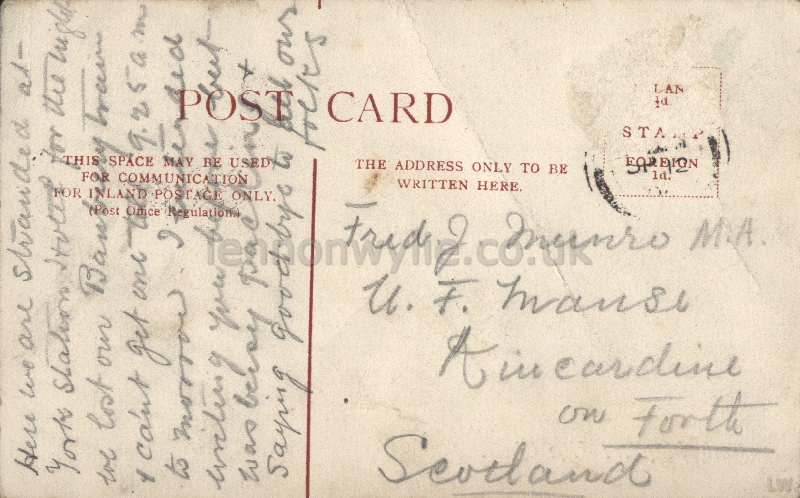 POST CARD
THIS SPACE MAY BE USED
FOR COMMUNICATION
FOR INLAND POSTAGE ONLY.
(Post Office Regulation.)
THE ADDRESS ONLY TO BE
WRITTEN HERE.
LAN
½d.
STAMP
FOREIGN
1d.
SP 12
Here we are stranded at
York Station Hotel for the night
we lost our Banbury train
& can't get one till 9.25 am
to morrow I intended
writing you before but
was busy packing &
saying good bye to all our
folks
Fred J. Munro M.A.
U. F. Manse
Kincardine
on Forth
Scotland
lennonwylie.co.uk